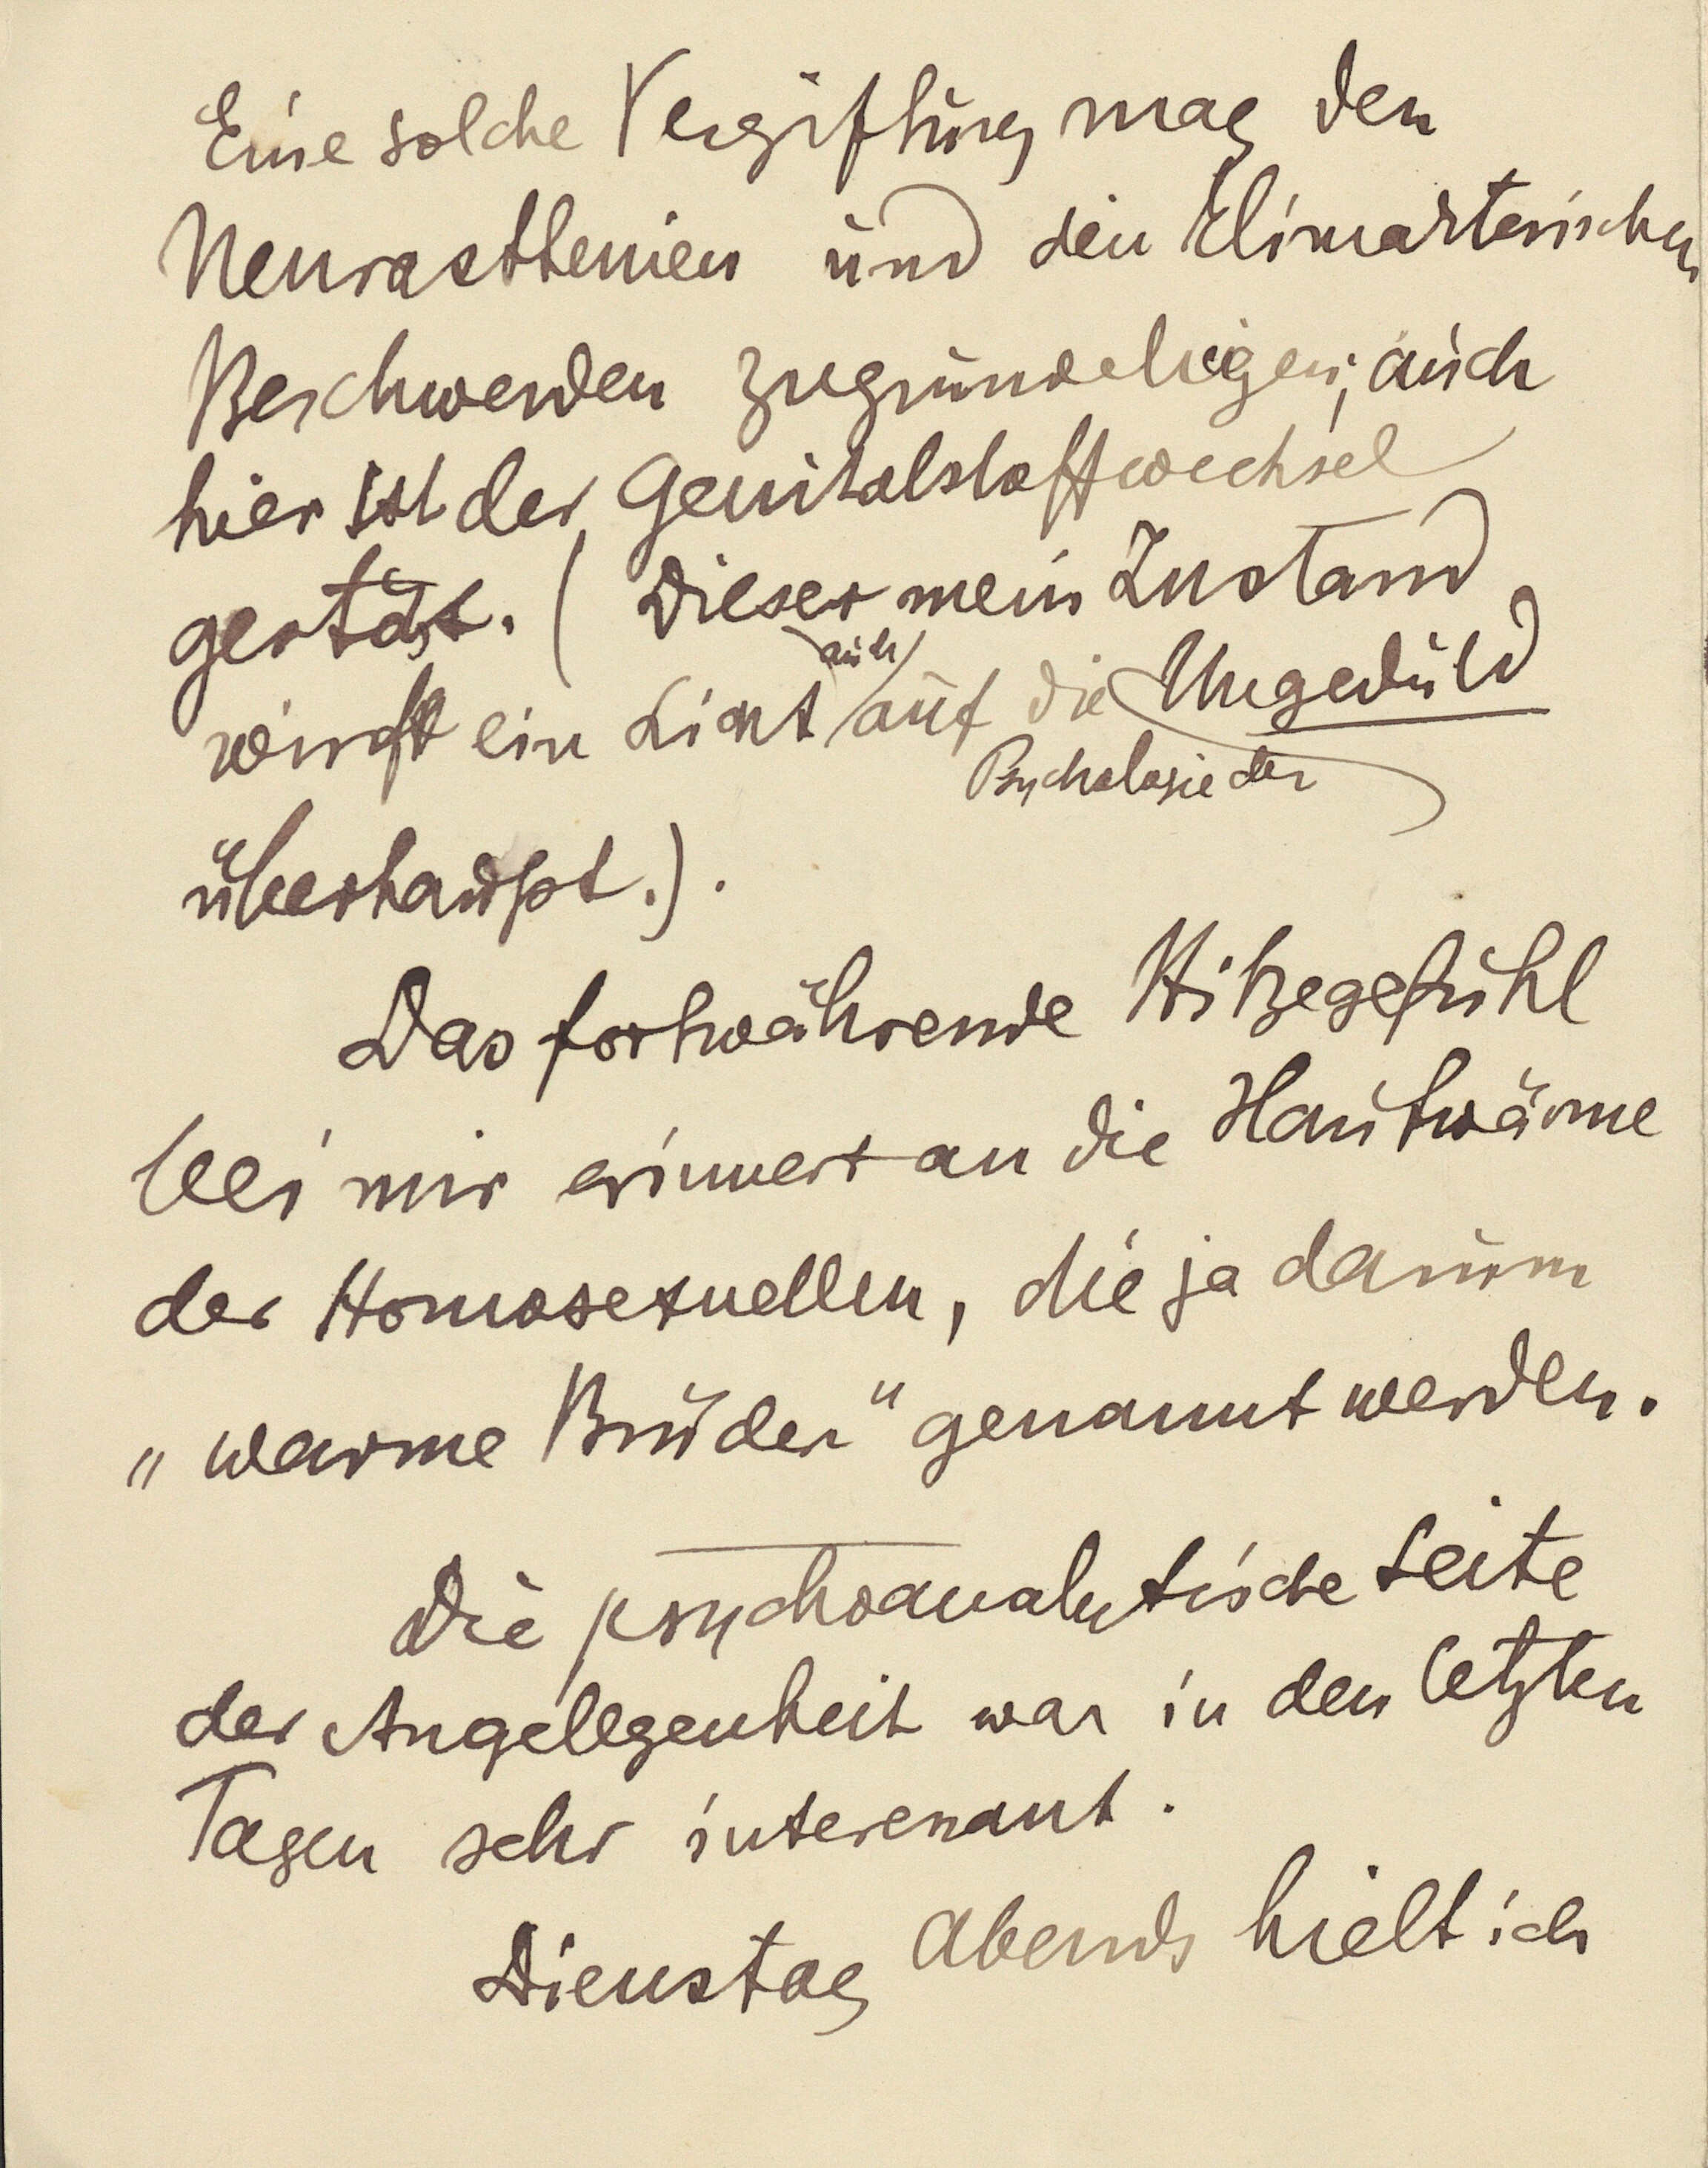 Eine solche Vergiftung mag den
Neurasthenien und den klimakterischen
Beschwerden zugrundeliegen; auch
hier ist der Genitalstoffwechsel
gestört. (Dieser mein Zustand
auch
wirft ein Licht auf die Ungeduld
Psychologie der
überhaupt.).
Das fortwährende Hitzegefühl
bei mir erinnert an die Hautwärme
der Homosexuellen, die ja darum
„warme Brüder“ genannt werden.
Die psychoanalytische Seite
der Angelegenheit war in den letzten
Tagen sehr interessant.
Dienstag Abends hielt ich